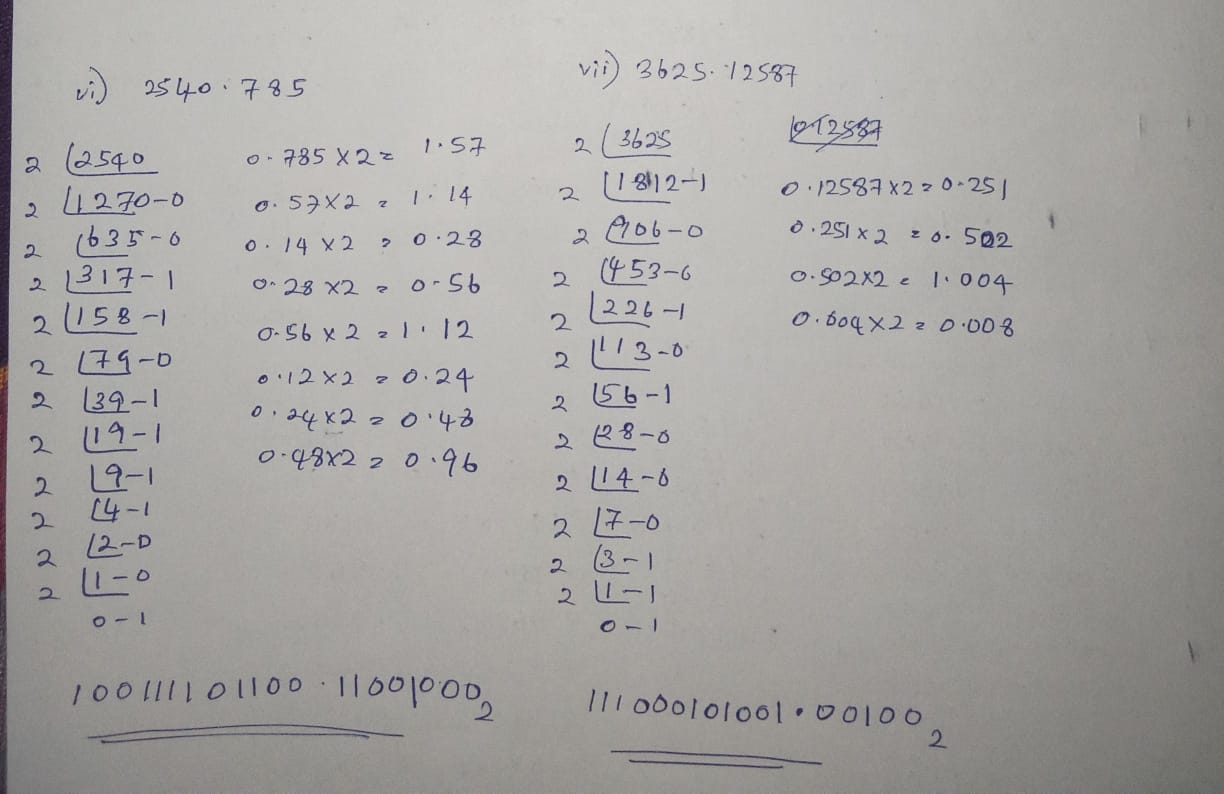 vi) 2540.785
2 2540
2 1270-0
2 635-0
2 317-1
2 158-1
2 79-0
2 39-1
2 19-1
2 9-1
2 4-1
2 2-0
2 1-0
0-1
0.785 x 2 = 1.57
0.57 x 2 = 1.14
0.14 x 2 = 0.28
0.28 x 2 = 0.56
0.56 x 2 = 1.12
0.12 x 2 = 0.24
0.24 x 2 = 0.48
0.48 x 2 = 0.96
100111101100.11001000₂
vii) 3625.12587
2 3625
2 1812-1
2 906-0
2 453-0
2 226-1
2 113-0
2 56-1
2 28-0
2 14-0
2 7-0
2 3-1
2 1-1
0-1
0.12587 x 2 = 0.251
0.251 x 2 = 0.502
0.502 x 2 = 1.004
0.004 x 2 = 0.008
111000101001.00100₂